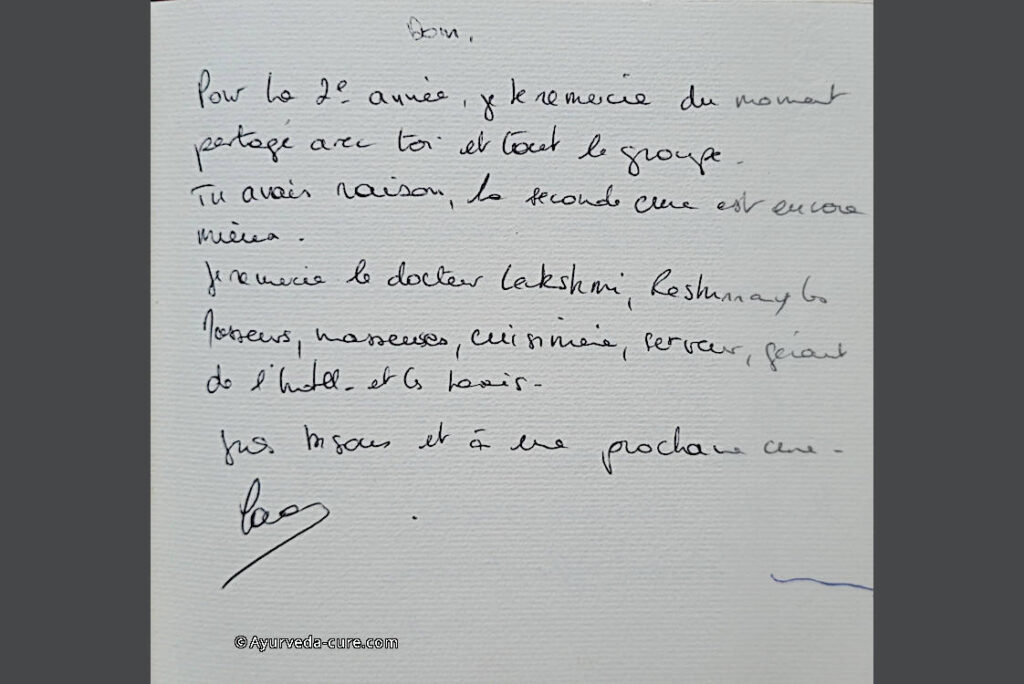 Dom.
Pour la 2e année, je te remercie du moment
partagé avec toi et tout le groupe.
Tu avais raison, la seconde cure est encore
mieux.
Je remercie le docteur Lakshmi, les
Masseurs, masseuses, cuisinière, serveur, gérant
de l'hôtel - et les
gros bisous et à une prochaine cure -
© Ayurveda-cure.com